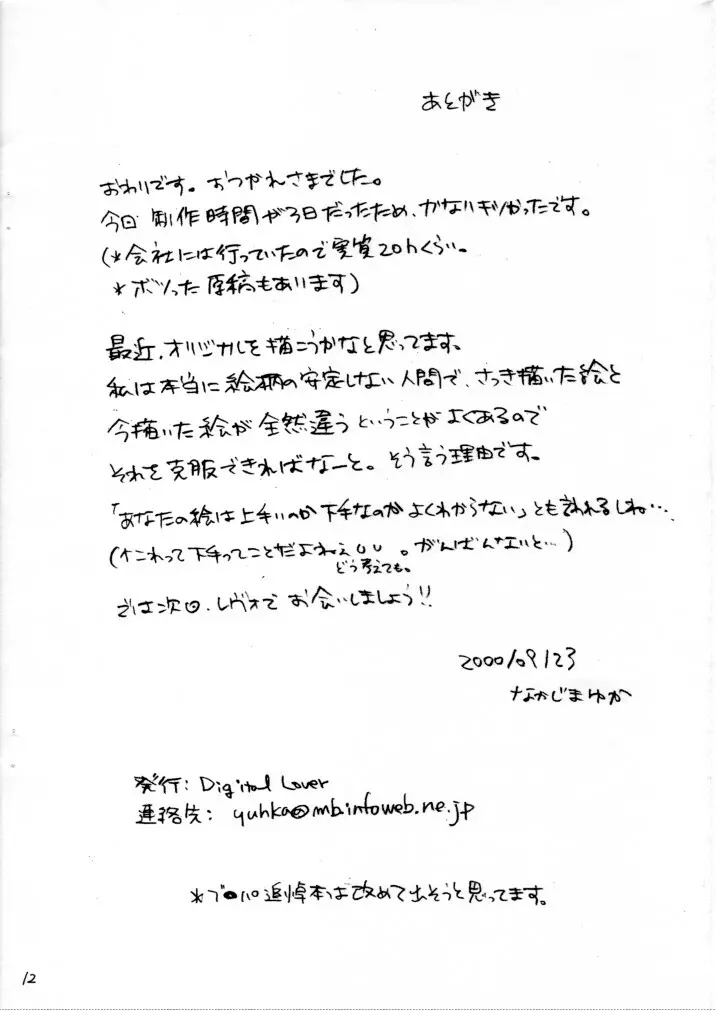 あとがき
おわりです。おつかれさまでした。
今回 制作時間が3日だったため、かなりギリだったです。
(*会社には行っていたので実質20hくらい。
*ボツった原稿もあります)
最近、オリジナルを描こうかなと思ってます。
私は本当に絵柄の安定しない人間で、さっき描いた絵と
今描いた絵が全然違うということがよくあるので
それを克服できればなーと。そう言う理由です。
「あなたの絵は上手いのか下手なのかよくわからない」とも言われるしね…
(これって下手ってことだよねぇUU。がんばんないと…)
どう考えても。
では次回、レヴォでお会いしましょう!!
2000/09/23
なかじまゆか
発行: Digital Lover
連絡先: yuhka@mb.infoweb.ne.jp
*プ●パ追悼本は改めて出そうと思ってます。
12